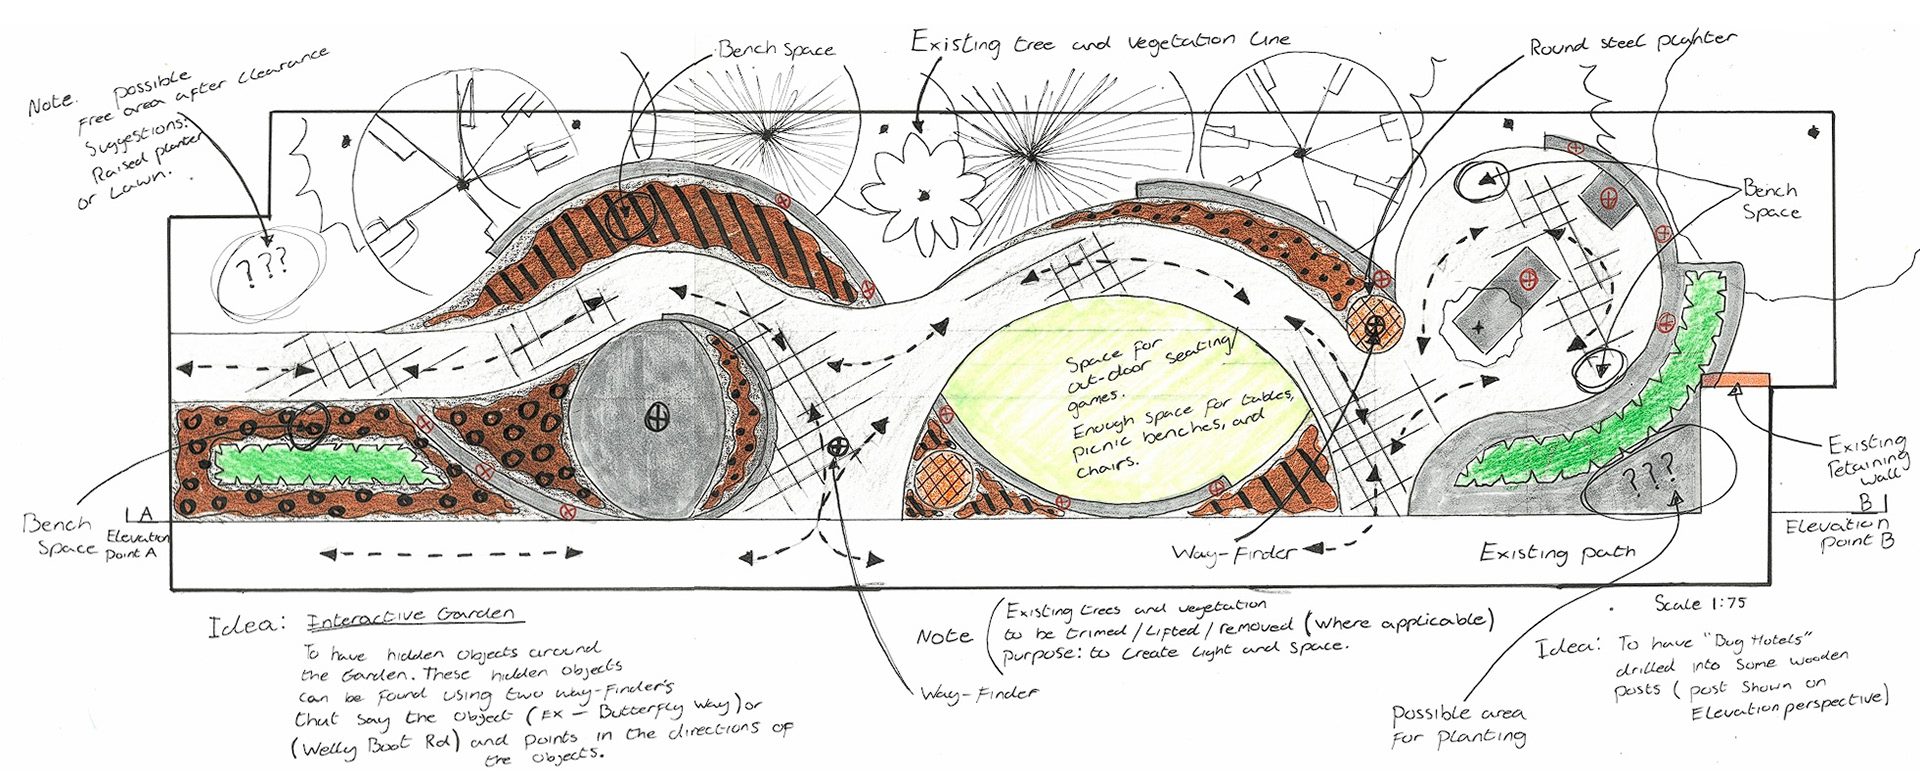 Note. possible
Free area after clearance
Suggestions:
Raised planter
or Lawn.
Bench Space
Existing tree and vegetation Line
Round steel planter
Bench
Space
???
Space for
out-door seating/
games.
Enough space for tables,
picnic benches, and
chairs.
Existing
retaining
wall
???
Bench
Space
A
Elevation
Point A
B
Elevation
Point B
Way-Finder
Existing path
Scale 1:75
Idea: Interactive Garden
To have hidden objects around
the Garden. These hidden objects
can be found using two way-Finder's
that say the object (Ex - Butterfly Way) or
(Welly Boot Rd) and points in the directions of
the objects.
Way-Finder
Note
Existing trees and vegetation
to be trimed/Lifted/removed (where applicable)
Purpose: to create Light and space.
Idea: To have "Bug Hotels"
drilled into some wooden
posts (post shown on
Elevation perspective)
Possible area
For planting